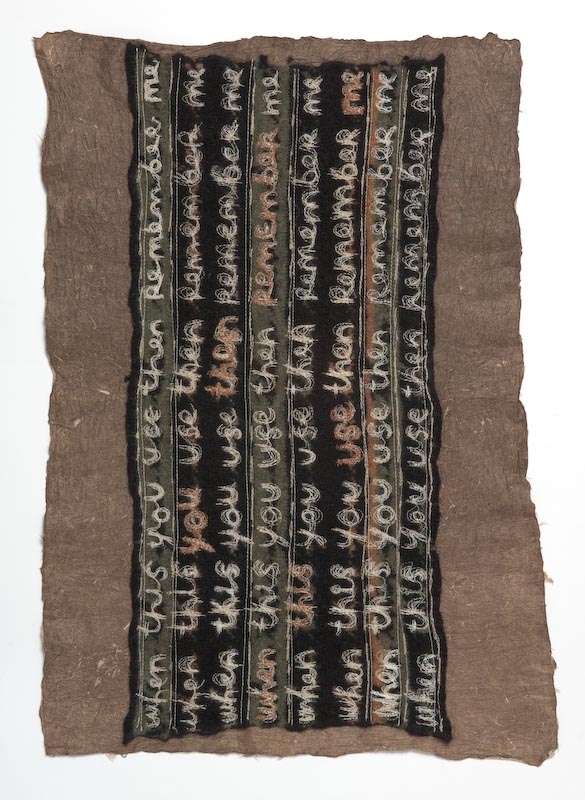 when this you use then remember me
when this you use then remember me
when this you use then remember me
when this you use then remember me
when this you use then remember me
when this you use then remember me
when this you use then remember me
when this you use then remember me